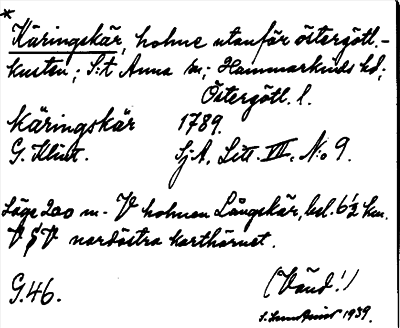 *
Käringskär, holme utanför östergötl.-
kusten; S:t Anna sn; Hammarkinds hd;
Östergötl. l.
Käringskär 1789.
G. Klint. Sj.A. Litt. III. N:o 9.
Läge 200 m. V holmen Långskär, bel. 6½ km.
V § V nordöstra karthörnet.
G.46. (Vänd!)
1939.